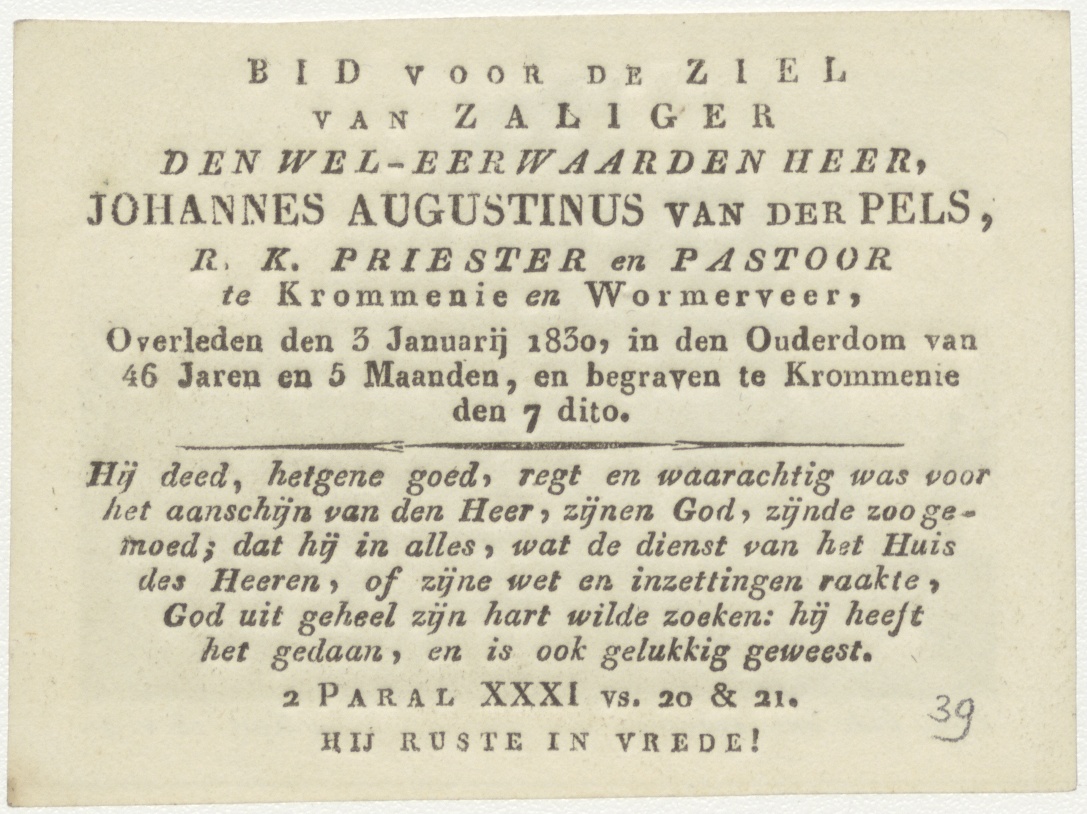 BID VOOR DE ZIEL
VAN ZALIGER
DEN WEL-EERWAARDEN HEER,
JOHANNES AUGUSTINUS VAN DER PELS,
R. K. PRIESTER en PASTOOR
te Krommenie en Wormerveer,
Overleden den 3 Januarij 1830, in den Ouderdom van
46 Jaren en 5 Maanden, en begraven te Krommenie
den 7 dito.
Hij deed, hetgene goed, regt en waarachtig was voor
het aanschijn van den Heer, zijnen God, zijnde zoo ge-
moed; dat hij in alles, wat de dienst van het Huis
des Heeren, of zijne wet en inzettingen raakte,
God uit geheel zijn hart wilde zoeken: hij heeft
het gedaan, en is ook gelukkig geweest.
2 PARAL XXXI vs. 20 & 21.
39
HIJ RUSTE IN VREDE!